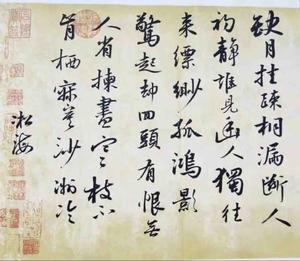 缺月挂疎桐漏斷人
初靜誰見幽人獨往
来縹緲孤鴻影
驚起却回頭有恨無
人省揀盡寒枝不
肯栖寂寞沙洲冷